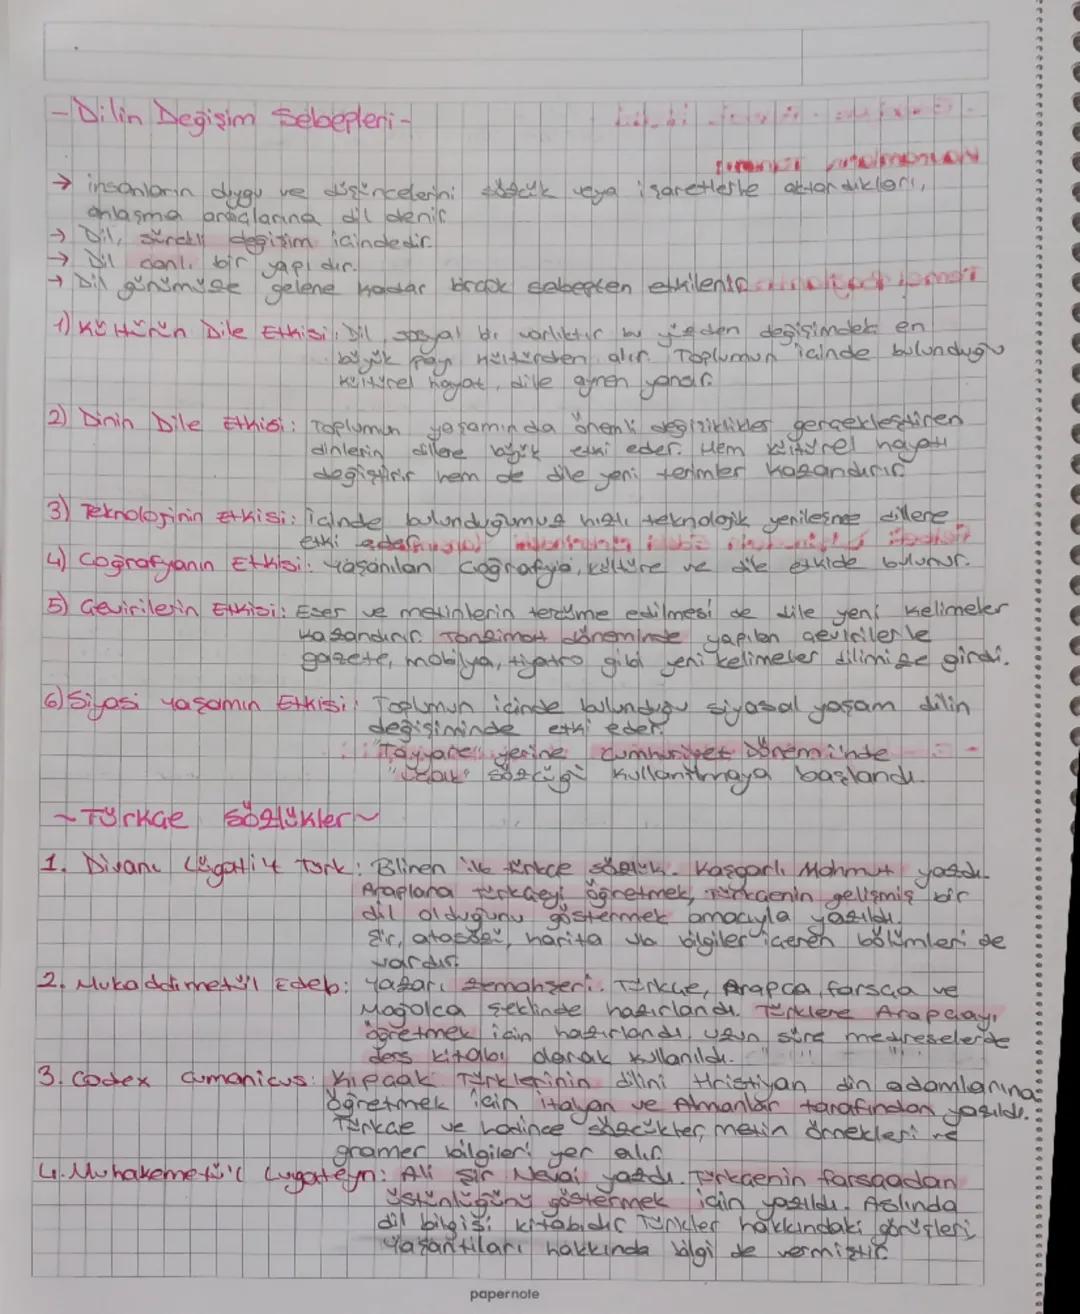 - Dilin Değişim Sebepleri -
→ insanların duygu ve düşüncelerini sözcük veya işaretlerle aktardıkları,
anlaşma araçlarına dil denir
→ Dil, sürekli değişim içindedir.
→ Dil canlı bir yapıdır.
→ Dil günümüze gelene kadar birçok sebepten etkilenir
1) Kültürün Dile Etkisi: Dil sosyal bir varlıktır bu yüzden değişimdeki en
büyük payı kültürden alır. Toplumun içinde bulunduğu
kültürel hayat, dile aynen yansır.
2) Dinin Dile Etkisi: Toplumun yaşamında önemli değişiklikler gerçekleştiren
dinlerin dillere büyük etki eder. Hem kültürel hayatı
değiştirir hem de dile yeni terimler kazandırır.
3) Teknolojinin Etkisi: içinde bulunduğumuz hızlı teknolojik yenileşme dillere
etki eder
4) Coğrafyanın Etkisi: Yaşanılan coğrafya, kültüre ve dile etkide bulunur.
5) Çevirilerin Etkisi: Eser ve metinlerin tercüme edilmesi de dile yeni kelimeler
kazandırır. Tanzimat döneminde yapılan çevirilerle
gazete, mobilya, tiyatro gibi yeni kelimeler dilimize girdi.
6) Siyasi yaşamın Etkisi: Toplumun içinde bulunduğu siyasal yaşam dilin
değişiminde etki eder.
"Tayyare" yerine Cumhuriyet Dönemi'nde
"Uçak" sözcüğü kullanılmaya başlandı.
~ Türkçe Sözlükler ~
1. Divanı Lügatit Türk: Bilinen ilk türkçe sözlük. Kaşgarlı Mahmut yazdı.
Araplara türkçeyi öğretmek, Türkçenin gelişmiş bir
dil olduğunu göstermek amacıyla yazıldı.
Şiir, atasözü, harita vb bilgiler içeren bölümleri de
vardır.
2. Mukaddimetü'l Edeb: Yazarı Zemahşeri. Türkçe, Arapça, farsça ve
Moğolca şeklinde hazırlandı. Türklere Arapçayı
öğretmek için hazırlandı, uzun süre medreselerde
ders kitabı olarak kullanıldı.
3. Codex Cumanicus: Kıpçak Türklerinin dilini Hristiyan din adamlarına
öğretmek için italyan ve Almanlar tarafından yazıldı.
Türkçe ve Latince sözcükler, metin örnekleri ve
gramer bilgileri yer alır.
4. Muhakemetü'l Lugateyn: Ali Şir Nevai yazdı. Türkçenin farsçadan
üstünlüğünü göstermek için yazıldı. Aslında
dil bilgisi kitabıdır Türkler hakkındaki görüşleri,
yaşantıları hakkında bilgi de vermiştir.
papernote